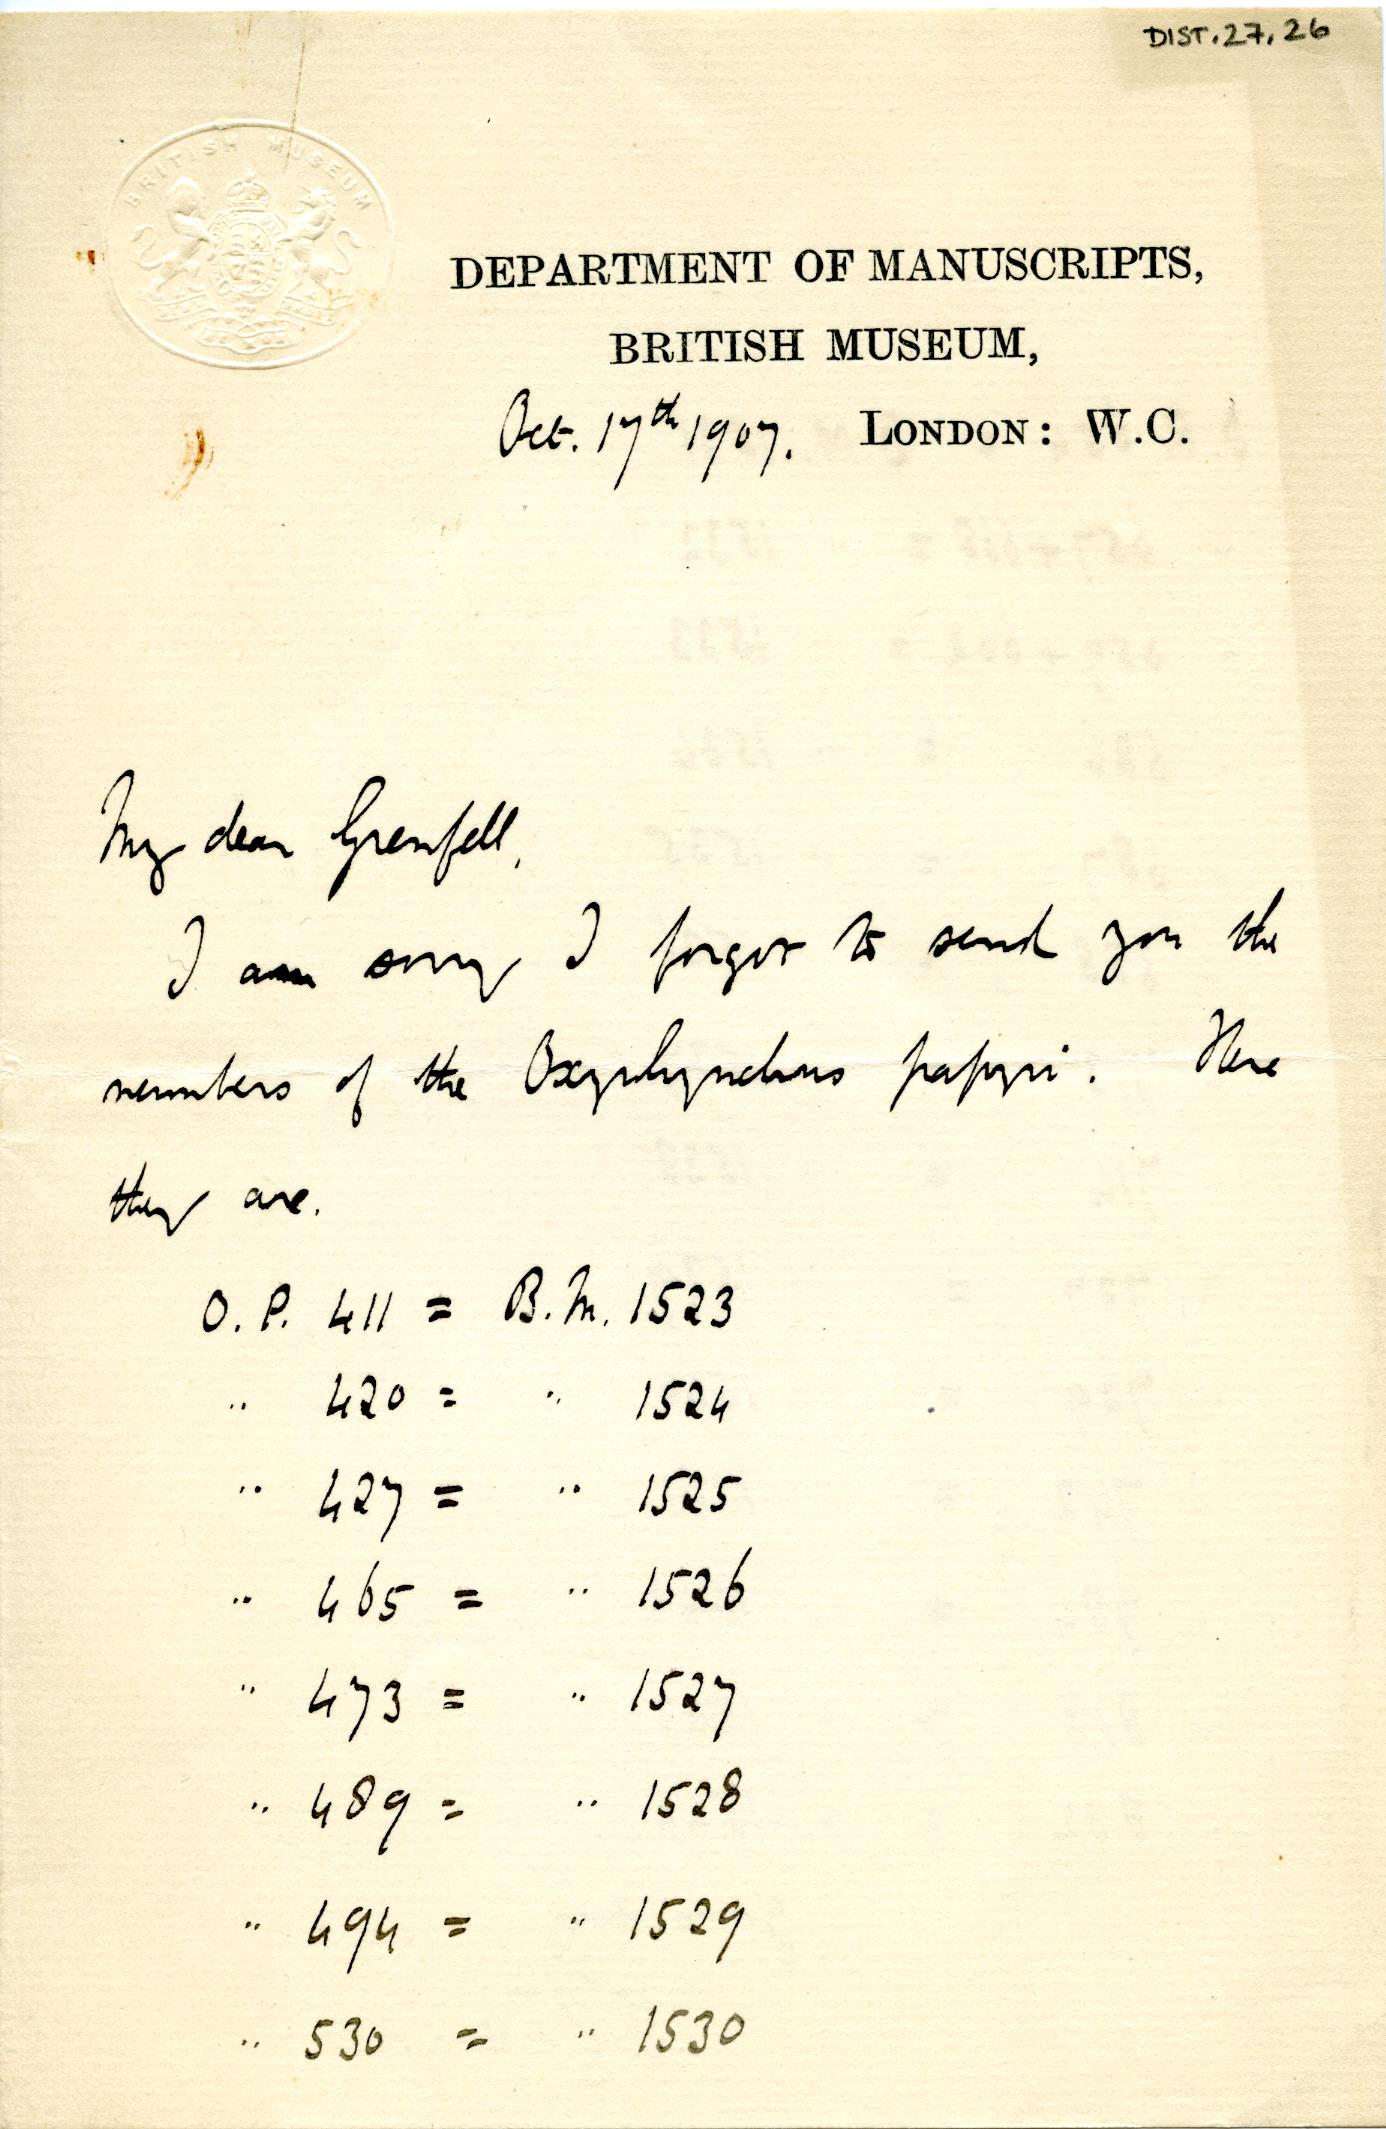 DIST.27.26
BRITISH MUSEUM
DEPARTMENT OF MANUSCRIPTS,
BRITISH MUSEUM,
Oct. 17th 1907. LONDON: W.C.
My dear Grenfell,
I am sorry I forgot to send you the
numbers of the Oxyrhynchus papyri. Here
they are.
O.P. 411 = B.M. 1523
" 420 = " 1524
" 427 = " 1525
" 465 = " 1526
" 473 = " 1527
" 489 = " 1528
" 494 = " 1529
" 530 = " 1530